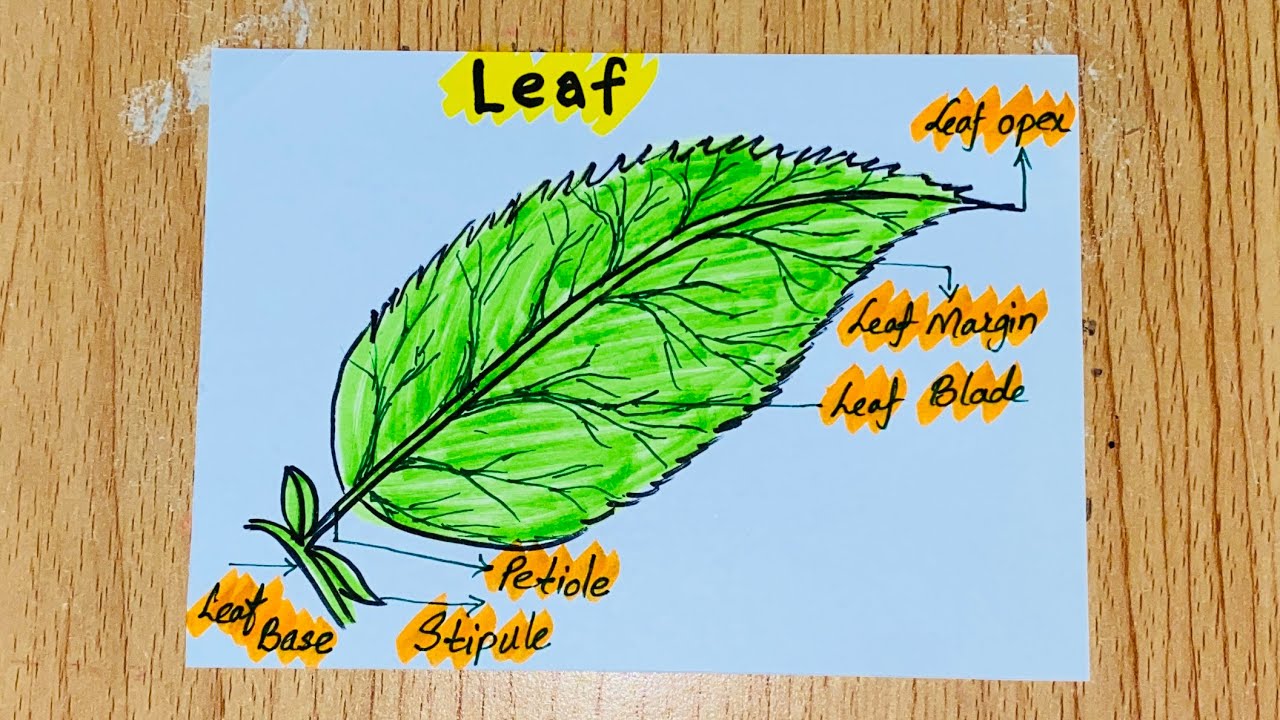 Leaf
Leaf opex
Leaf Margin
Leaf Blade
Petiole
Leaf
Base
Stipule